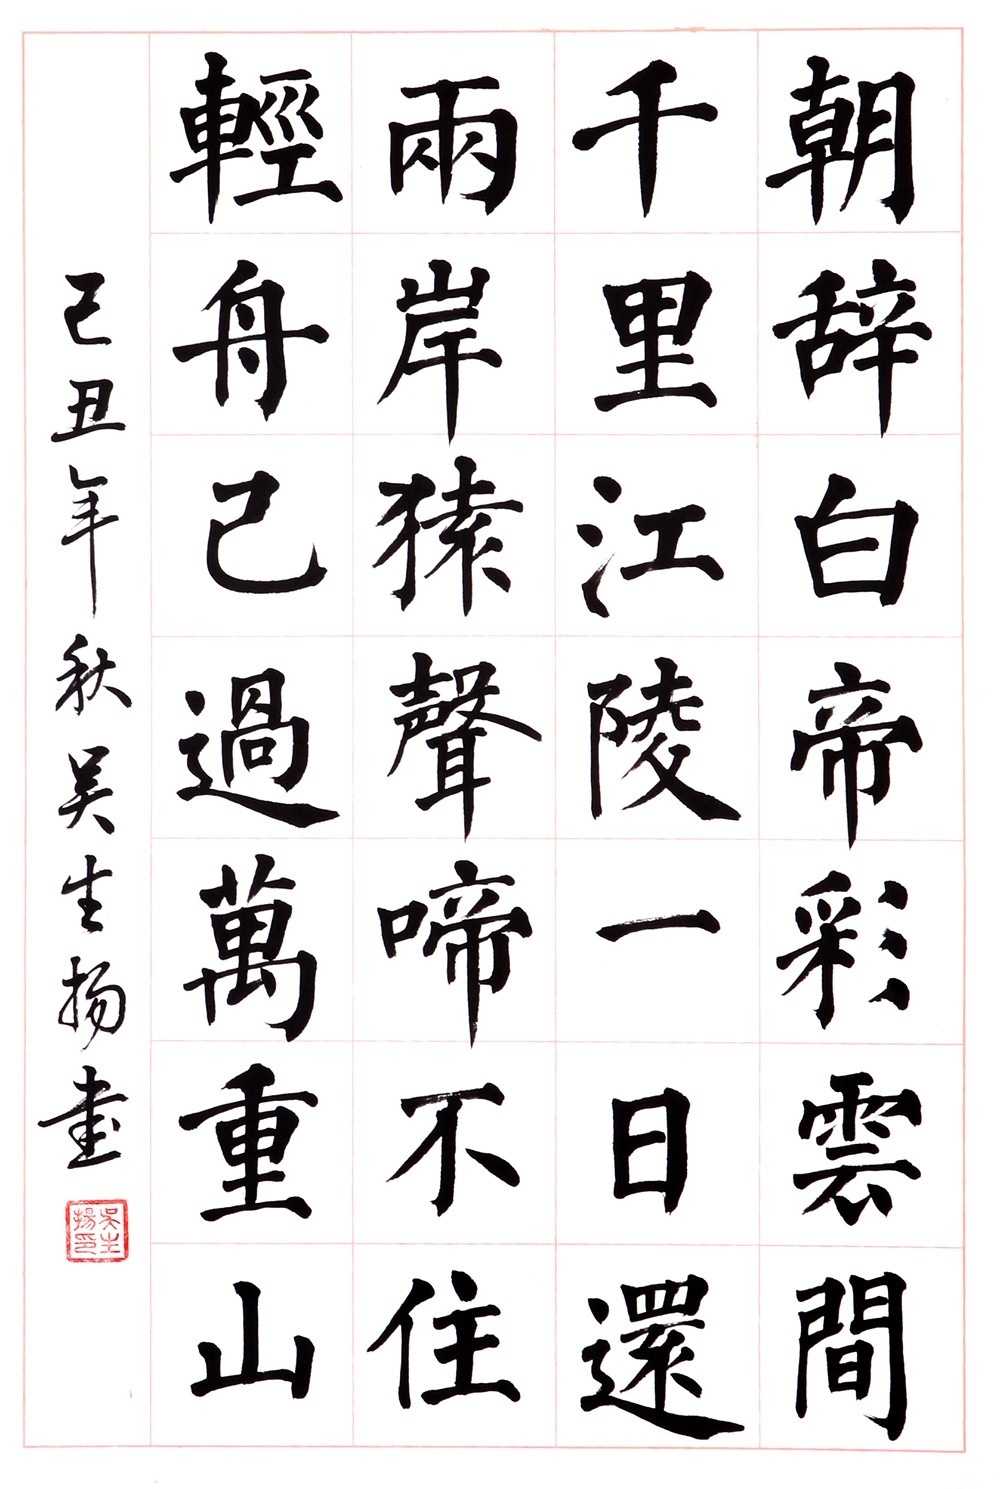 朝辞白帝彩雲間
千里江陵一日還
兩岸猿聲啼不住
輕舟己過萬重山
己丑年秋吴生扬书
吴生揚印